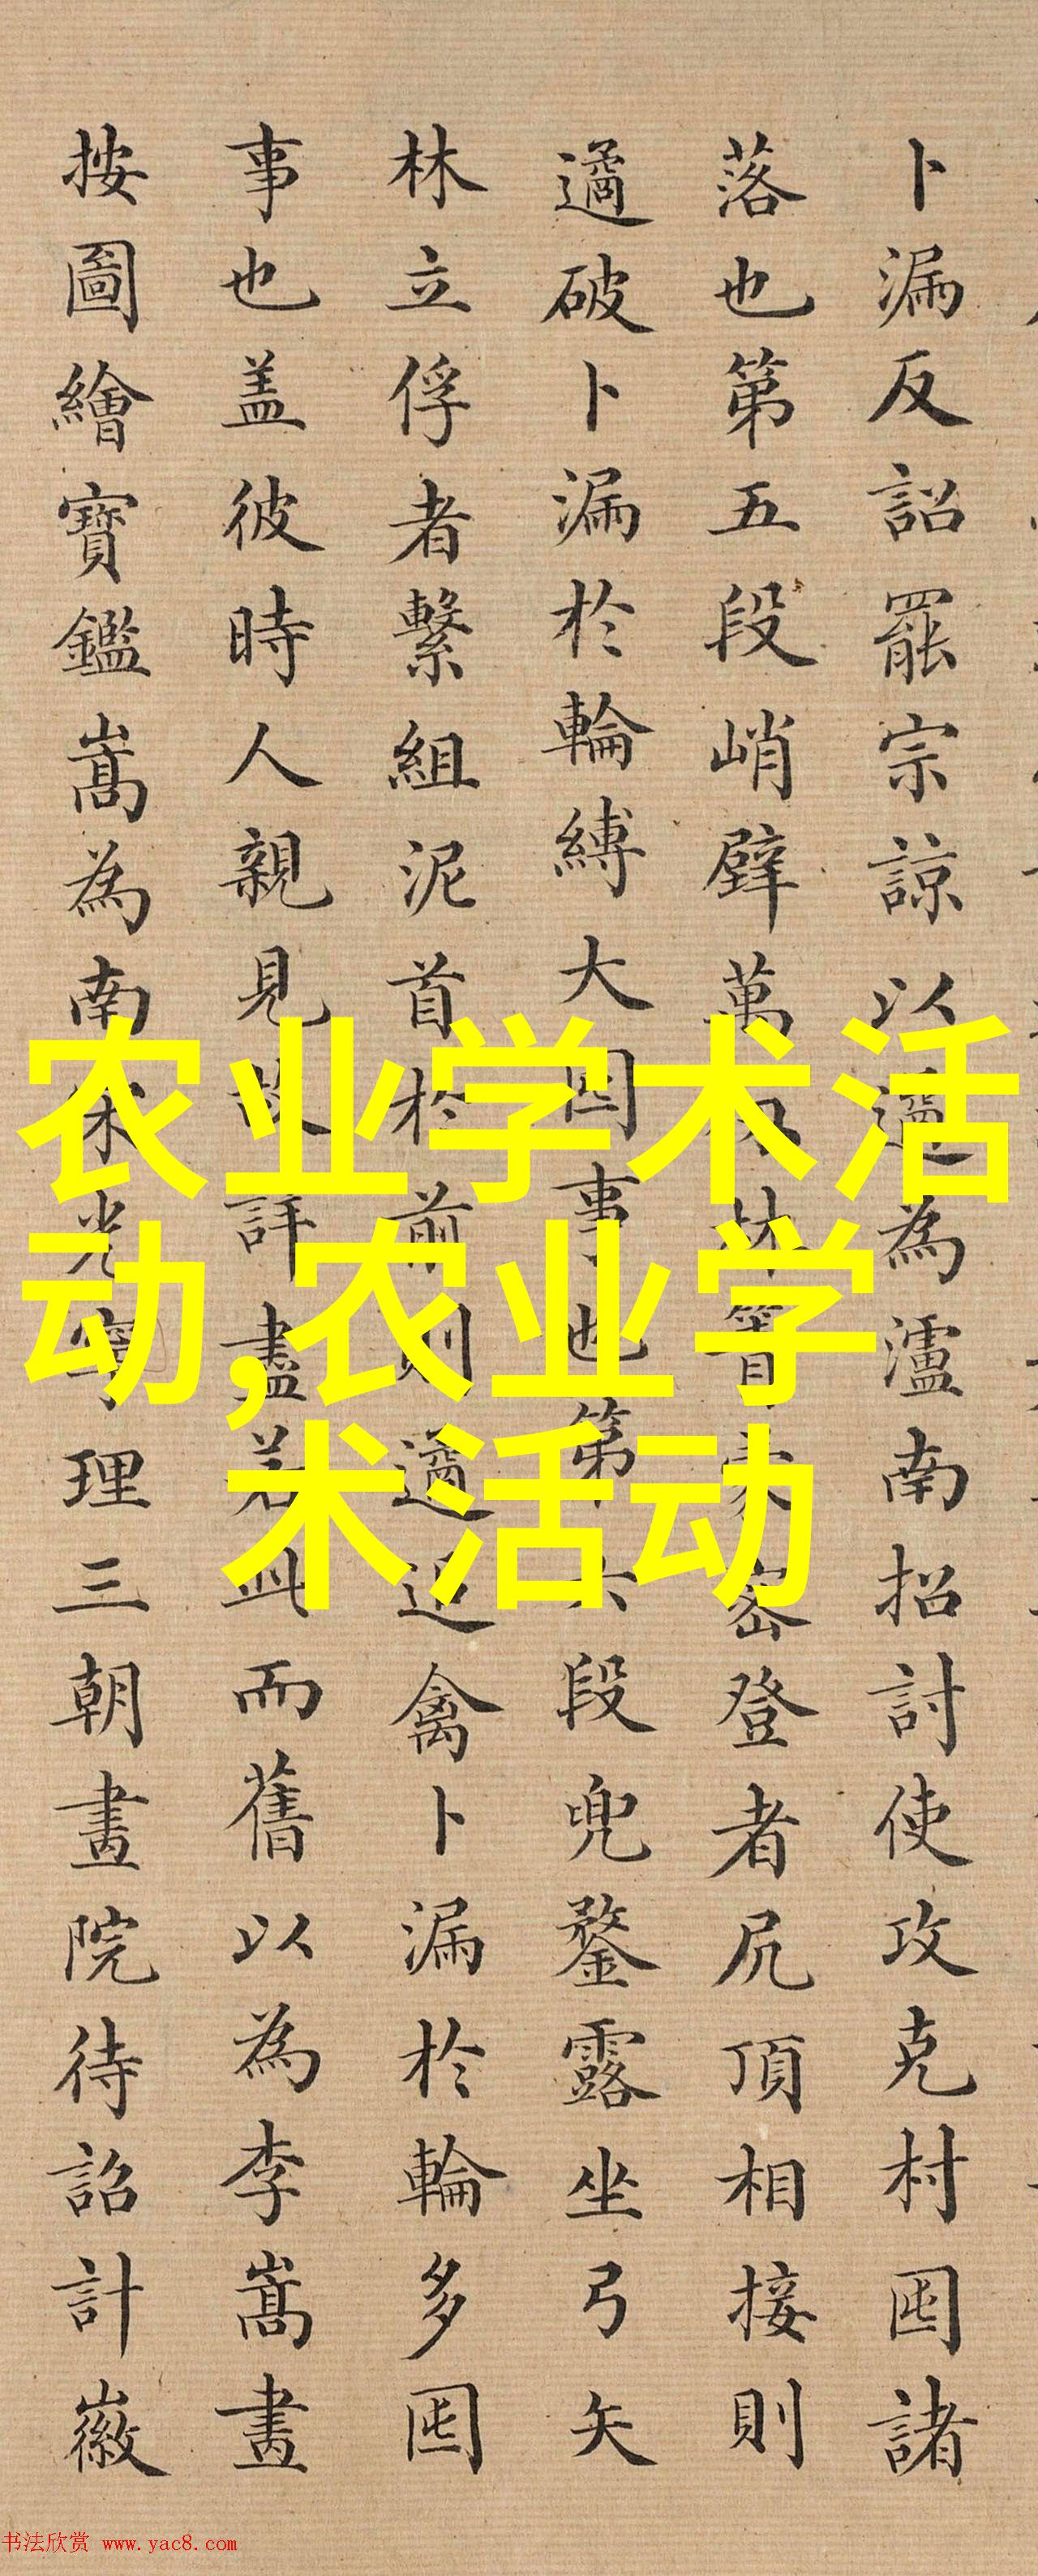 卜漏反詔罷宗諒以遹為瀘南招討使攻克村囤諸
落也第五段峭壁萬仞林箐蒙密登者尻頂相接則
遹破卜漏於輪縛大囤事也第六段兜鍪露坐弓矢
林立俘者繫組泥首於前則遹追禽卜漏於輪多囤
事也盖彼時人親見故詳盡若此而舊以為李嵩畫
按圖繪寶鑑嵩為南宋光寧理三朝畫院待詔計徽
农业学术活
动,农业学
术活动
书法欣赏 www.yac8.com